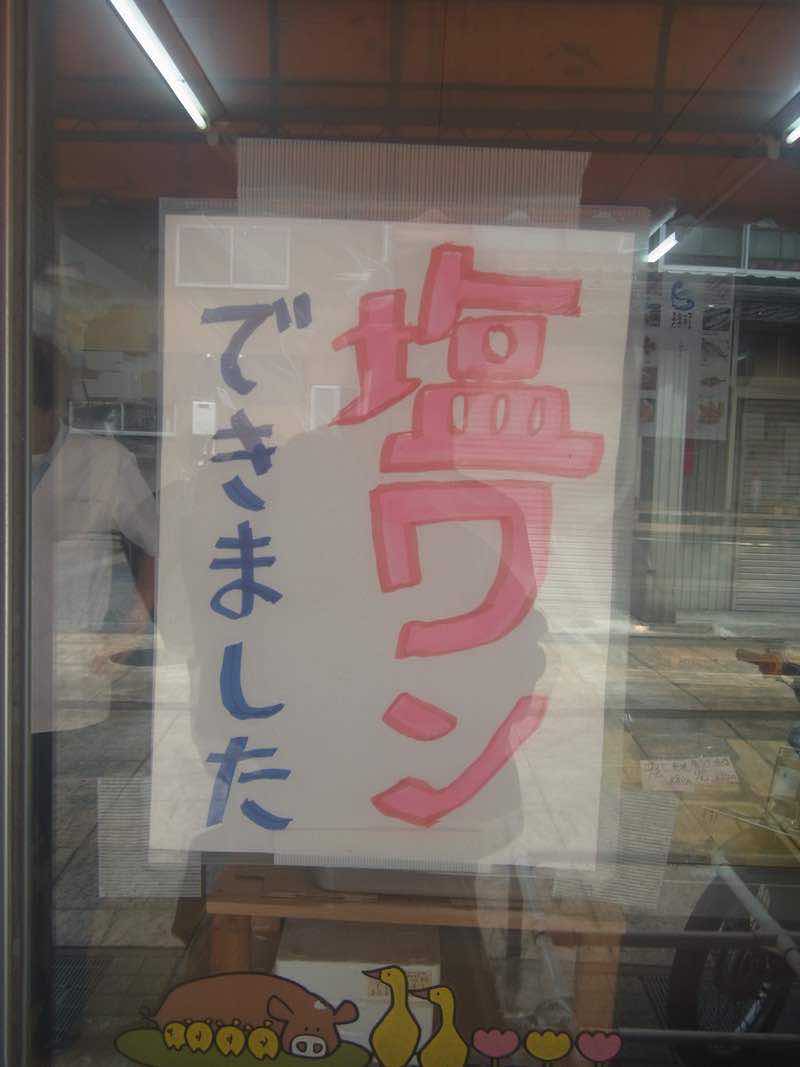 塩ワン
できました